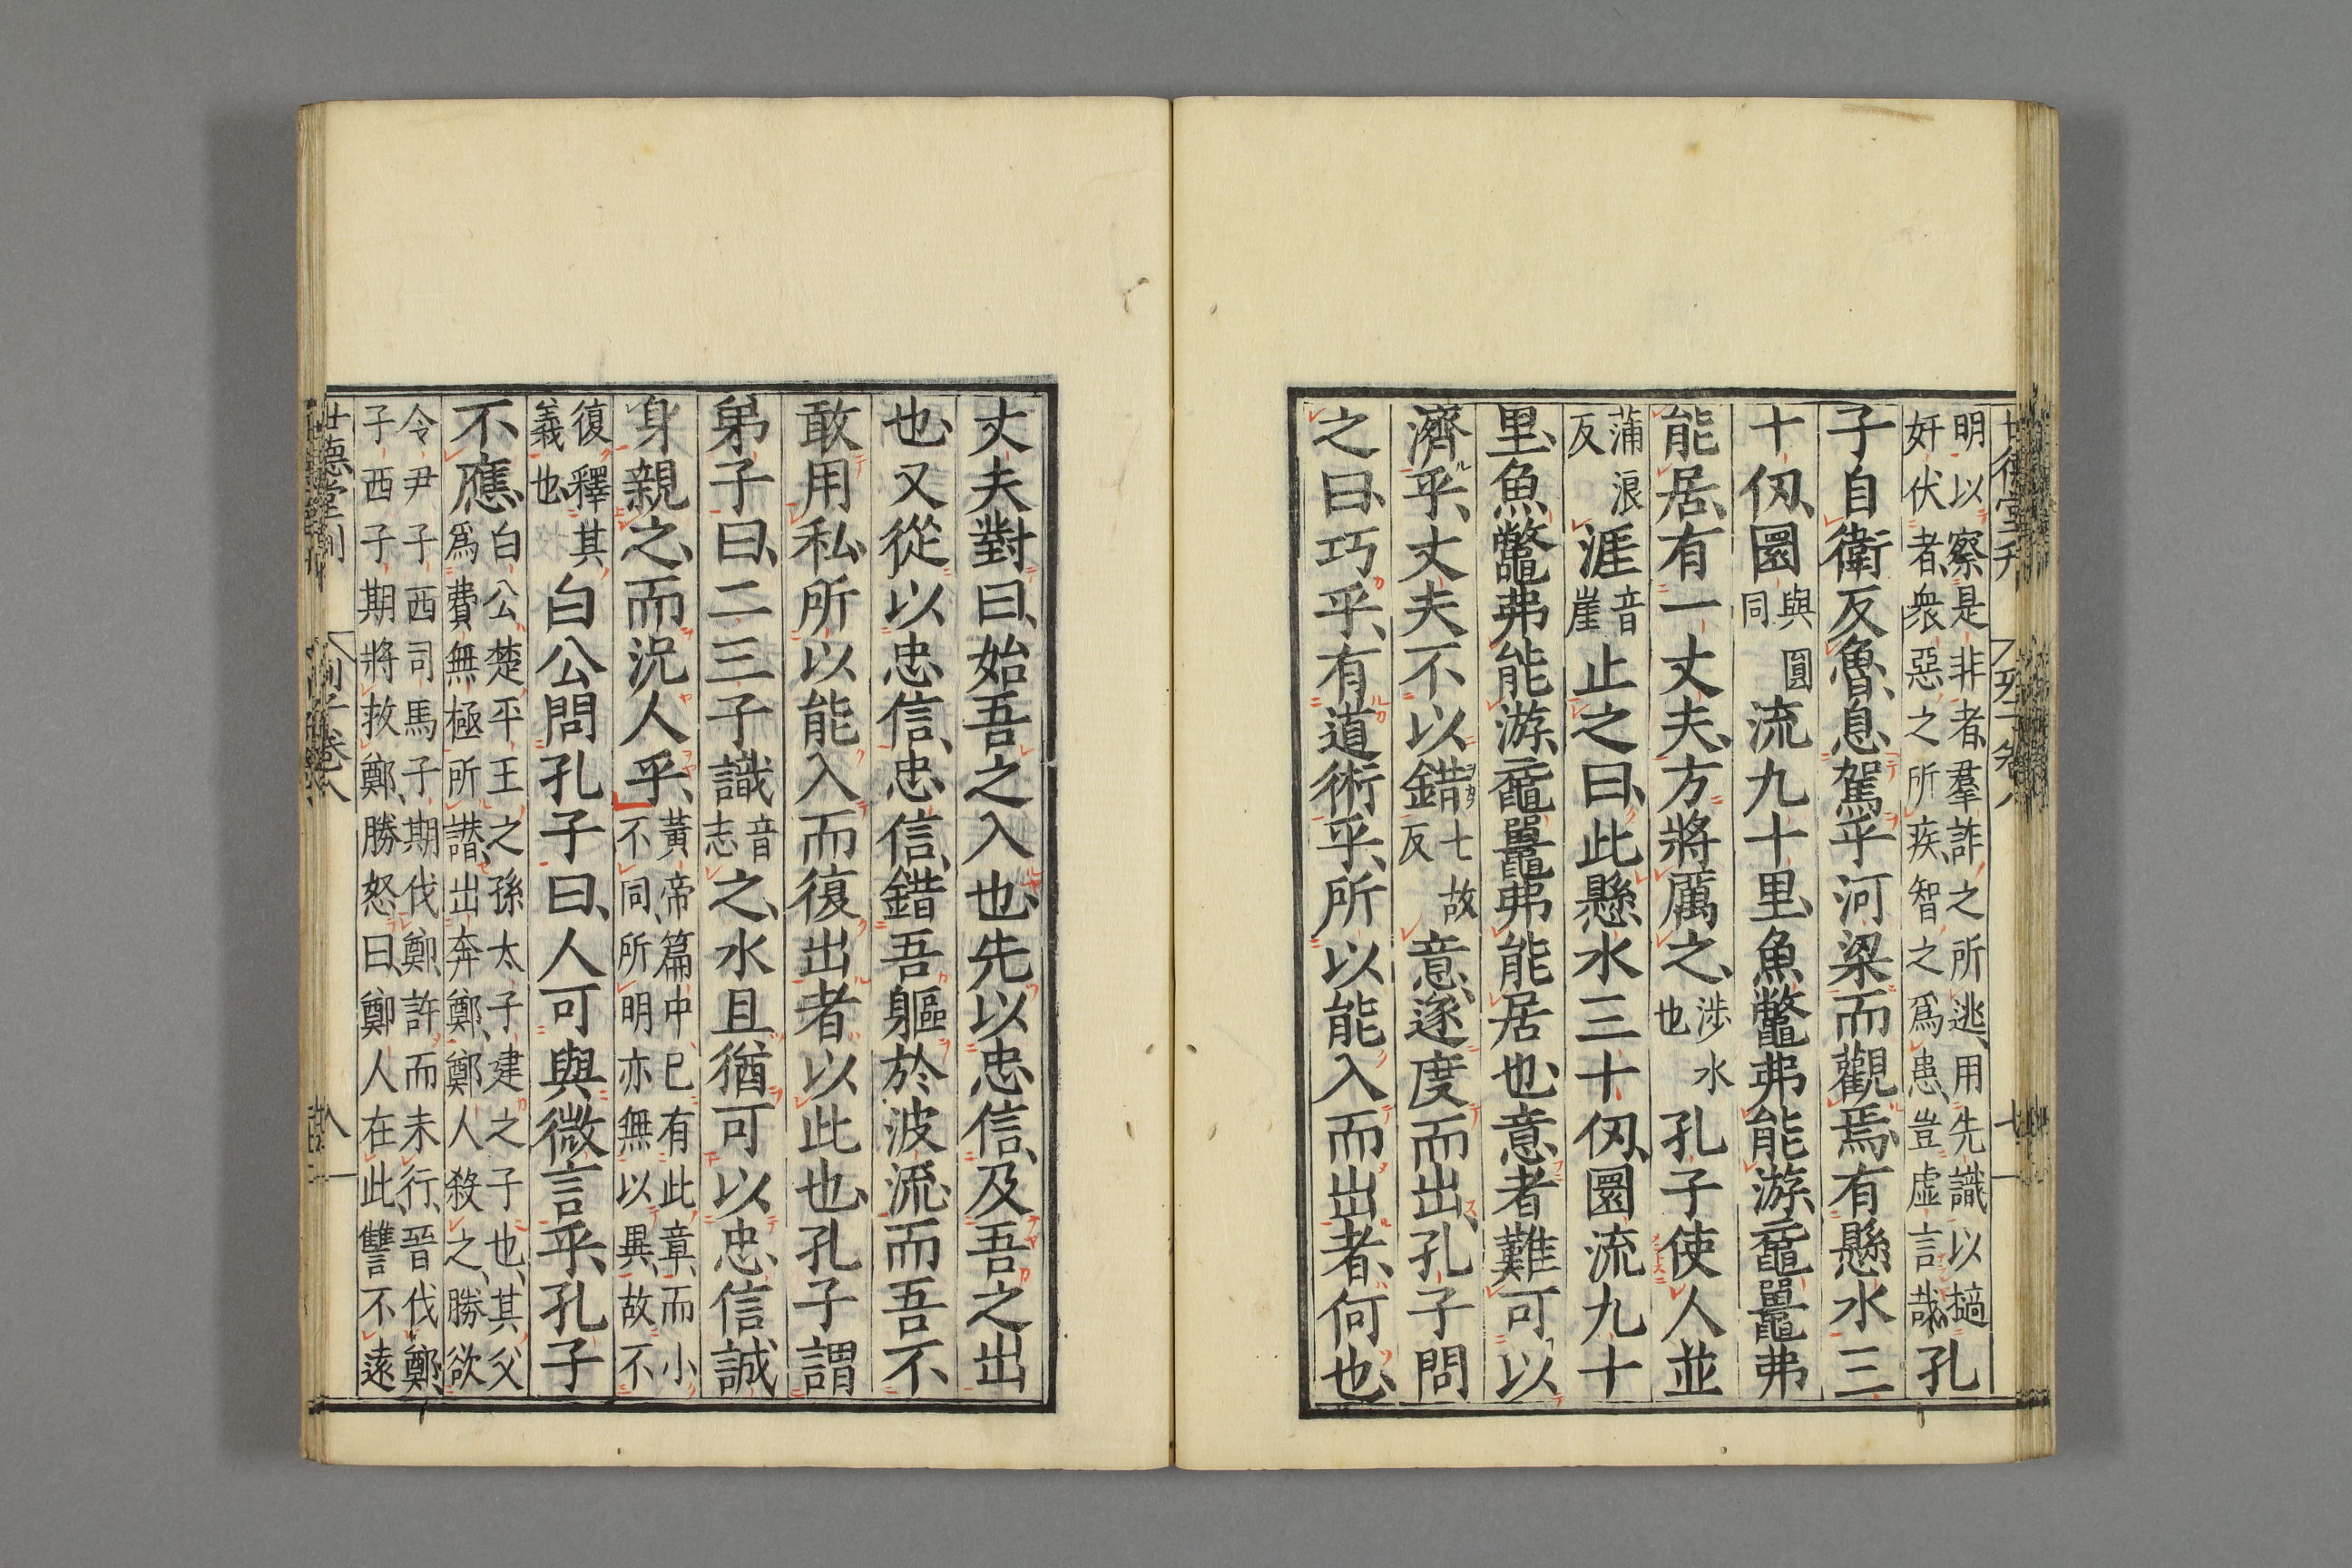 明以察是非者羣詐之所逃用先識以擿
奸伏者衆惡之所疾智之爲患豈虛言哉孔
子自衛反魯息駕乎河梁而觀焉有懸水三
十仭圜與圓同流九十里魚鼈弗能游黿鼉弗
能居有一丈夫方將厲之涉水也孔子使人並
蒲浪反涯音崖止之曰此懸水三十仭圜流九十
里魚鼈弗能游黿鼉弗能居也意者難可以
濟乎丈夫不以錯七故反意遂度而出孔子問
之曰巧乎有道術乎所以能入而出者何也
丈夫對曰始吾之入也先以忠信及吾之出
也又從以忠信忠信錯吾軀於波流而吾不
敢用私所以能入而復出者以此也孔子謂
弟子曰二三子識音志之水且猶可以忠信誠
身親之而況人乎黃帝篇中已有此章而小不同所明亦無以異故不
復釋其義也白公問孔子曰人可與微言乎孔子
不應白公楚平王之孫太子建之子也其父爲費無極所譛出奔鄭鄭人殺之勝欲
令尹子西司馬子期伐鄭許而未行晉伐鄭子西子期將救鄭勝怒曰鄭人在此讐不遠
世德堂刊 列子卷八 八